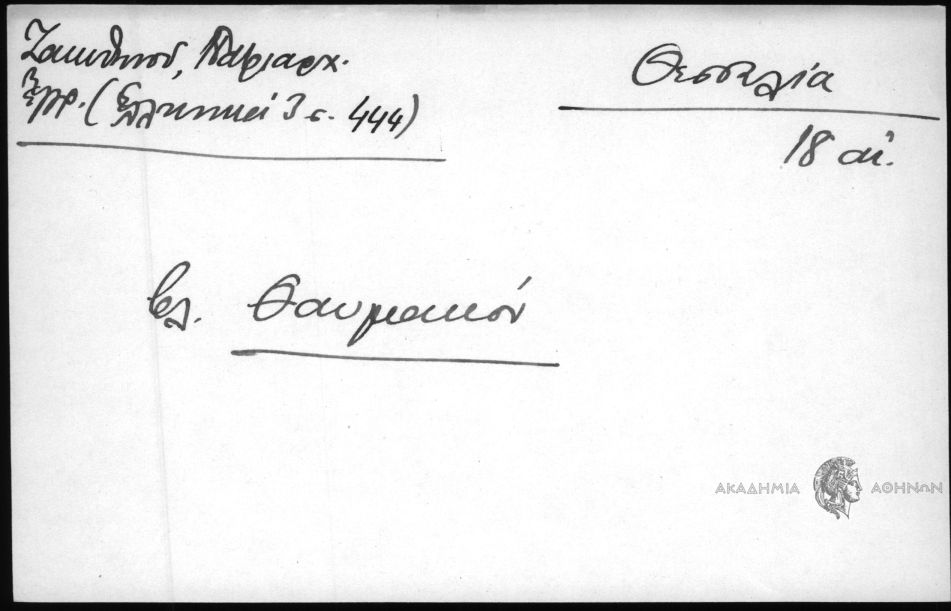 Ζακυθηνού, Πατριαρχ.
Έγγρ. (Ελληνικά 3 σ. 444)
Θεσσαλία
18 αι.
βλ. Θαυμακόν
ΑΚΑΔΗΜΙΑ ΑΘΗΝΩΝ